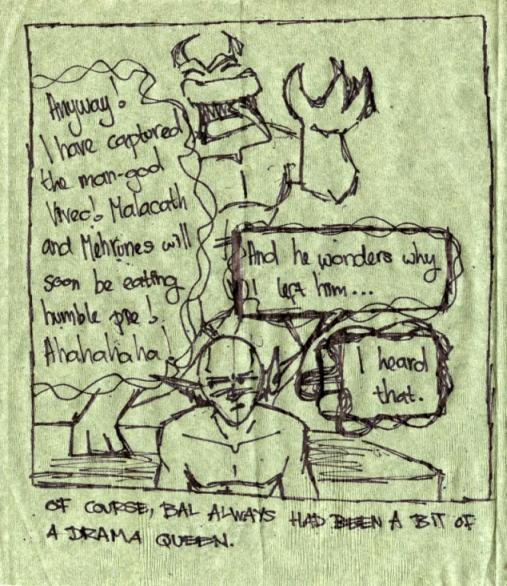 Anyway!
I have captured
the man-god
Vivec! Malacath
and Mehrunes will
soon be eating
humble pie!
Ahahahaha!
And he wonders why
I left him...
I heard
that.
OF COURSE, BAL ALWAYS HAD BEEN A BIT OF
A DRAMA QUEEN.